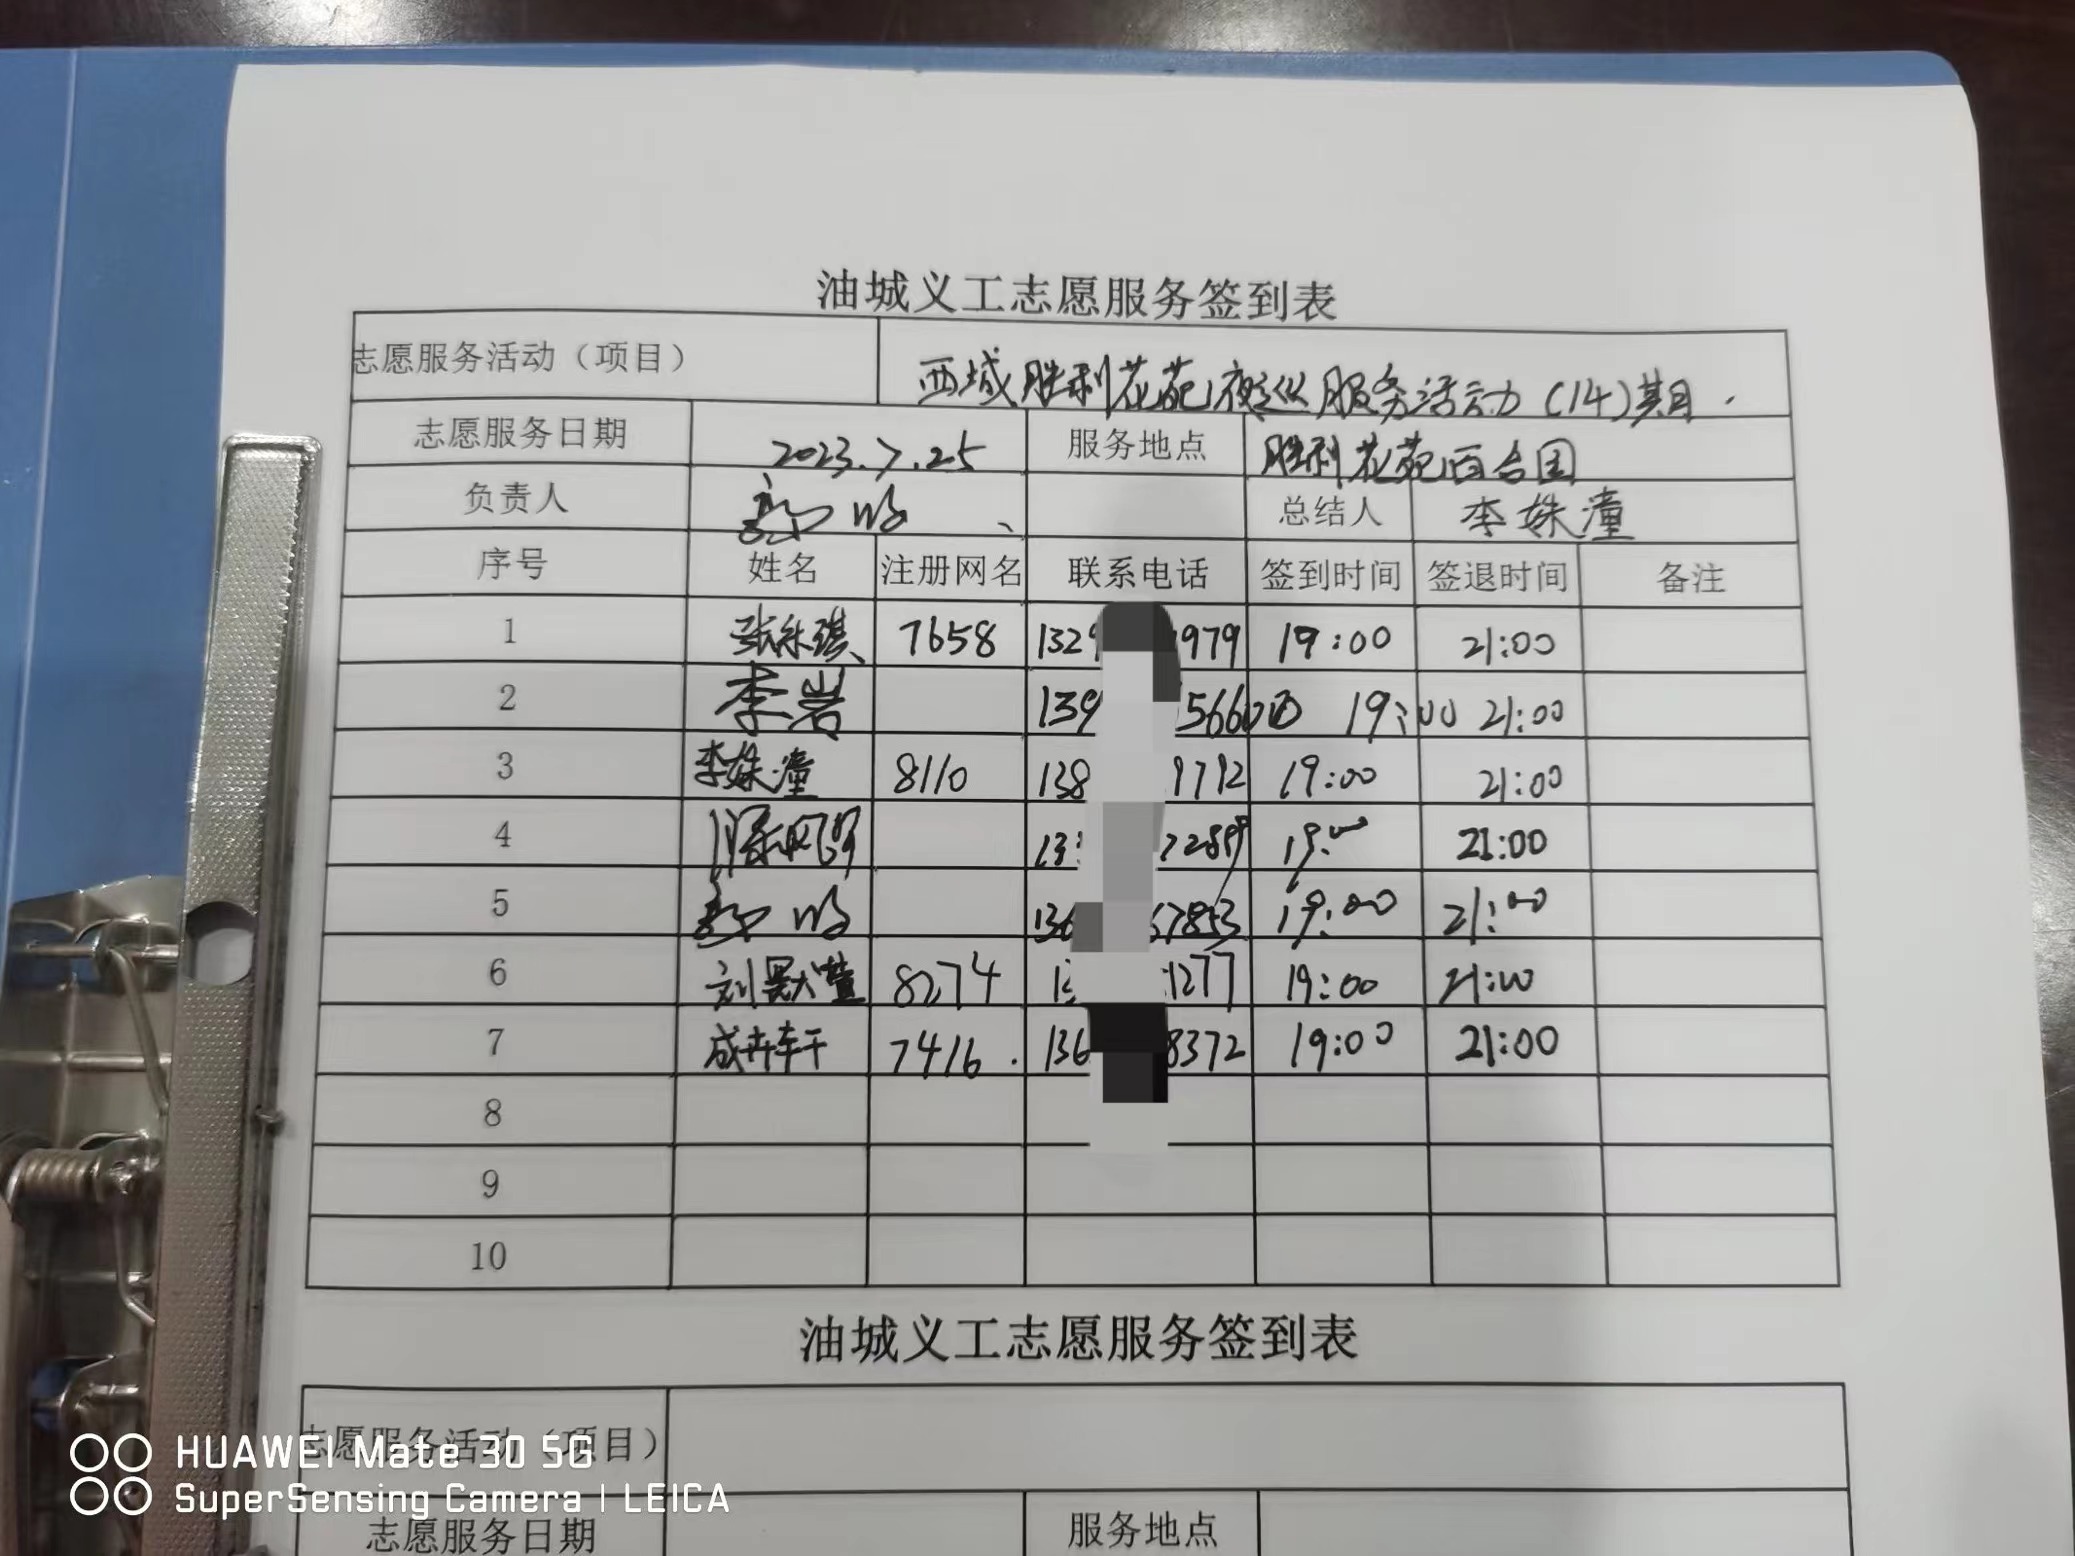 油城义工志愿服务签到表
志愿服务活动（项目） 西城胜利花苑夜巡服务活动（14）期
志愿服务日期 2023.7.25 服务地点 胜利花苑百合园
负责人 总结人 李姝潼
序号 姓名 注册网名 联系电话 签到时间 签退时间 备注
1 7658 132 979 19:00 21:00
2 李岩 139 566 19:00 21:00
3 李姝潼 8110 138 9792 19:00 21:00
4 13 19:00 21:00
5 136 7853 19:00 21:00
6 8274 1277 19:00 21:00
7 7416 136 8372 19:00 21:00
8
9
10
油城义工志愿服务签到表
志愿服务活动（项目）
志愿服务日期 服务地点
HUAWEI Mate 30 5G
SuperSensing Camera | LEICA